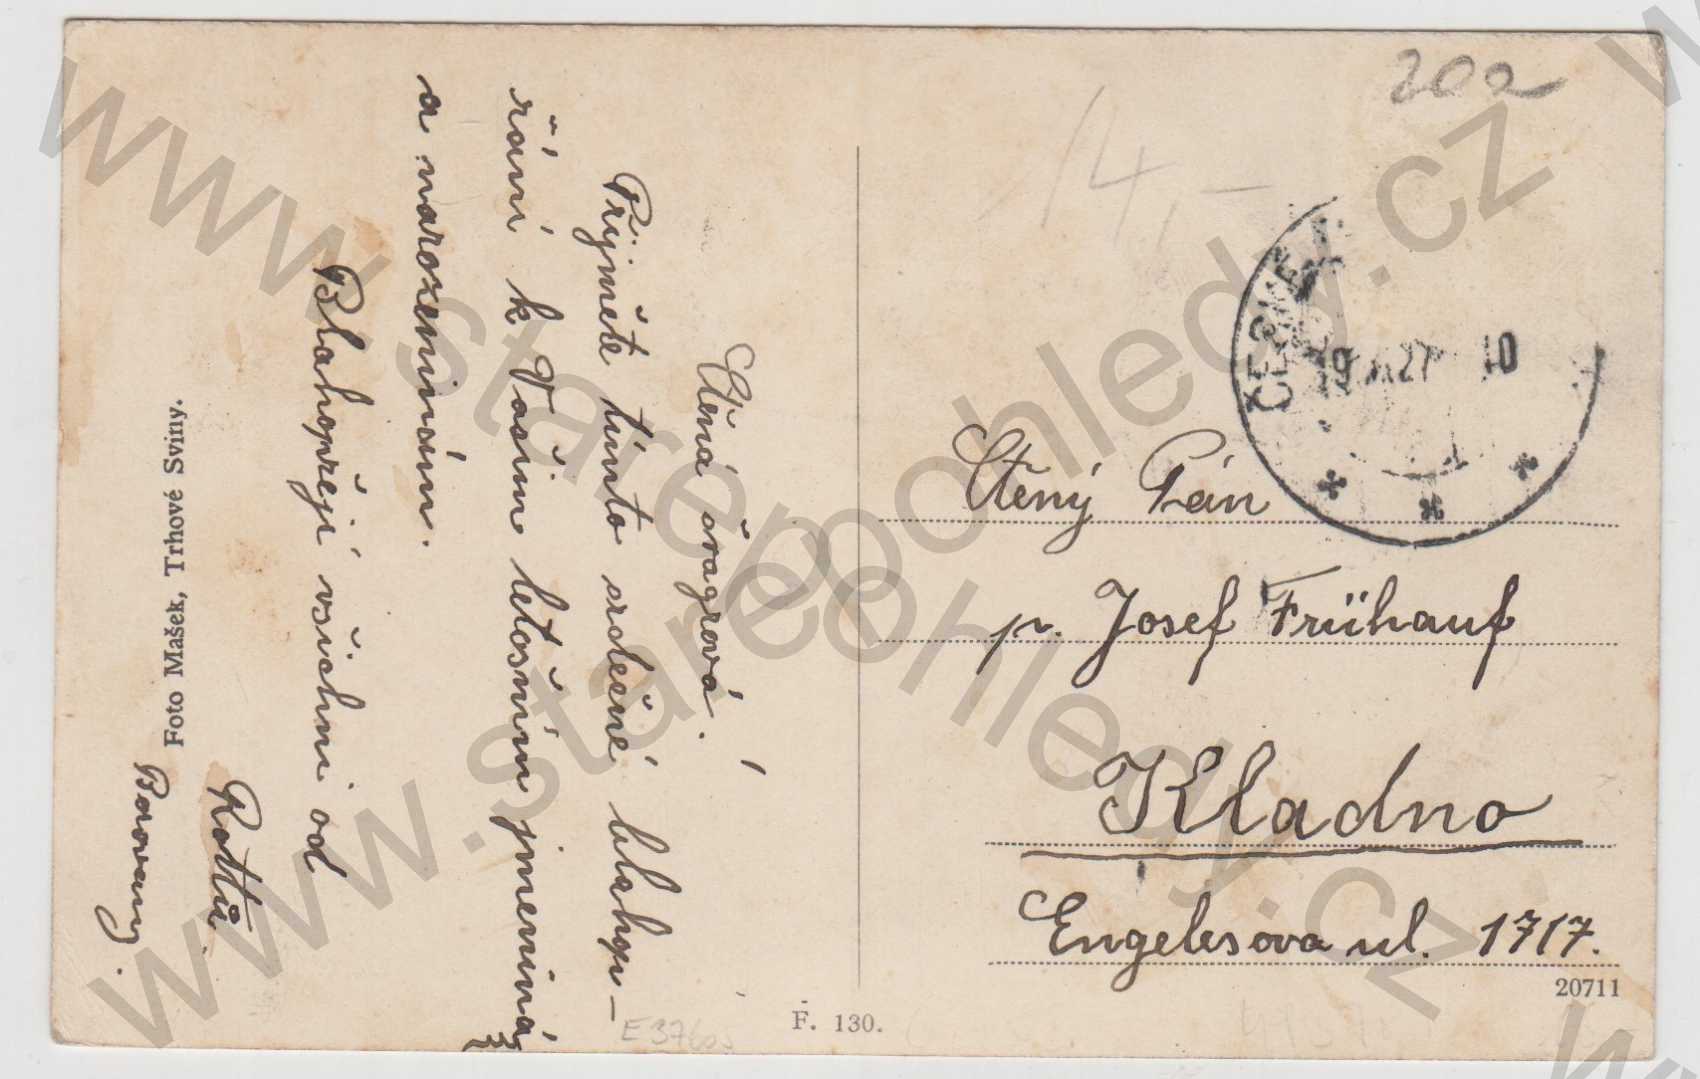 Ctěná švagrová!
Přijměte tímto srdečné blahop-
řání k Vašim letošním jmeninám
a narozeninám.
Blahopřejí všichni od
Rottů
Borovany.
Foto Mašek, Trhové Sviny.
F. 130.
14,-
ČERNÉ
27
10
Ctěný Pán
p. Josef Frühauf
Kladno
Engelesova ul. 1717.
20711
www.starepohledy.cz
www.starepohledy.cz